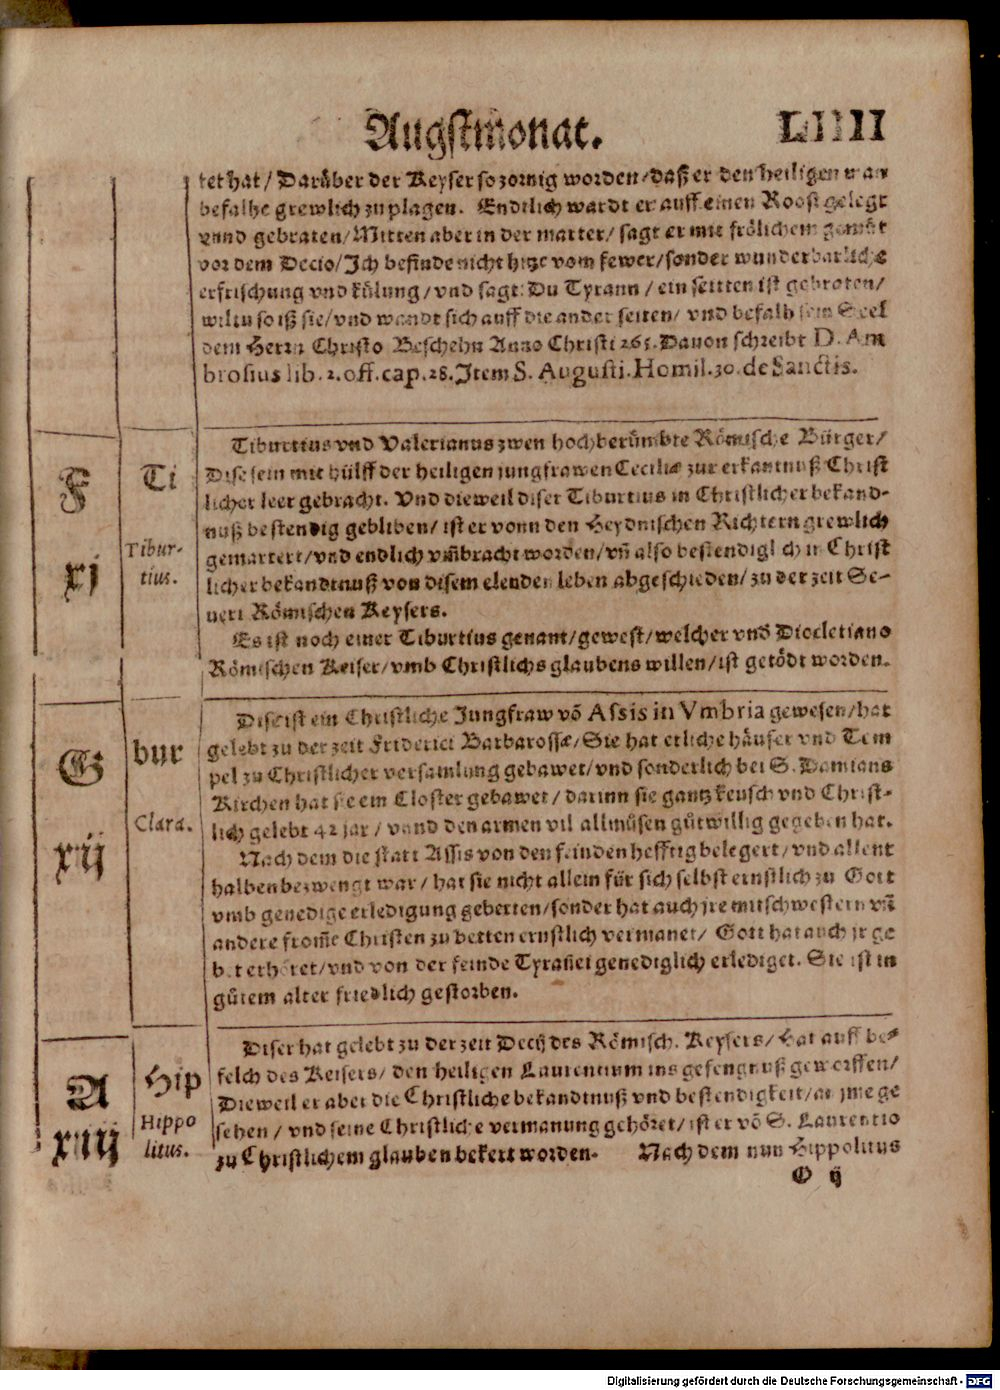 Augstmonat. LIIII
tet hat / Darüber der Keyser so zornig worden / daß er den heiligen man
befalhe grewlich zu plagen. Endtlich wardt er auff einen Roost gelegt
vnnd gebraten / Mitten aber in der marter / sagt er mit frölichem gemüt
vor dem Decio / Ich befinde nicht hitze vom fewer / sonder wunderbarliche
erfrischung vnd külung / vnd sagt: Du Tyrann / ein seitten ist gebroten /
wiltu so iß sie / vnd wandt sich auff die ander seiten / vnd befalh sein Seel
dem Herrn Christo Beschehn Anno Christi 265. Dauon schreibt D. Am
brosius lib. 2. off. cap. 28. Item S. Augusti. Homil. 30. de Sanctis.
F
xj
Ti
Tibur-
tius.
Tiburtius vnd Valerianus zwen hochberümbte Römische Bürger /
Dise sein mit hülff der heiligen jungfrawen Ceciliæ zur erkantnuß Christ
licher leer gebracht. Vnd dieweil diser Tiburtius in Christlicher bekand-
nuß bestendig gebliben / ist er vonn den Heydnischen Richtern grewlich
gemartert / vnd endlich vm̄bracht worden / vn̄ also bestendiglich in Christ
licher bekandtnuß von disem elenden leben abgeschieden / zu der zeit Se-
ueri Römischen Keysers.
Es ist noch einer Tiburtius genant / gewest / welcher vnd̄ Diocletiano
Römischen Keiser / vmb Christlichs glaubens willen / ist getödt worden.
G
xij
bur
Clara.
Dise ist ein Christliche Jungfraw vō Assis in Vmbria gewesen / hat
gelebt zu der zeit Friderici Barbarossæ / Sie hat etliche häuser vnd Tem
pel zu Christlicher versamlung gebawet / vnd sonderlich bei S. Damians
Kirchen hat sie ein Closter gebawet / darinn sie gantz keusch vnd Christ-
lich gelebt 42 jar / vnnd den armen vil allmůsen gůtwillig gegeben hat.
Nach dem die statt Assis von den feinden hefftig belegert / vnd allent
halben bezwengt war / hat sie nicht allein für sich selbst ernstlich zu Gott
vmb genedige erledigung gebetten / sonder hat auch jre mitschwestern vn̄
andere from̄e Christen zu betten ernstlich vermanet / Gott hat auch jr ge
bet erhöret / vnd von der feinde Tyran̄ei genediglich erlediget. Sie ist in
gůtem alter friedlich gestorben.
A
xiij
Hip
Hippo
litus.
Diser hat gelebt zu der zeit Decij des Römisch. Keysers / Hat auff be-
felch des Keisers / den heiligen Laurentium ins gefengnuß geworffen /
Dieweil er aber die Christliche bekandtnuß vnd bestendigkeit / an jme ge
sehen / vnd seine Christliche vermanung gehöret / ist er vō S. Laurentio
zu Christlichem glauben bekert worden. Nach dem nun Hippolitus
O ij
Digitalisierung gefördert durch die Deutsche Forschungsgemeinschaft - DFG